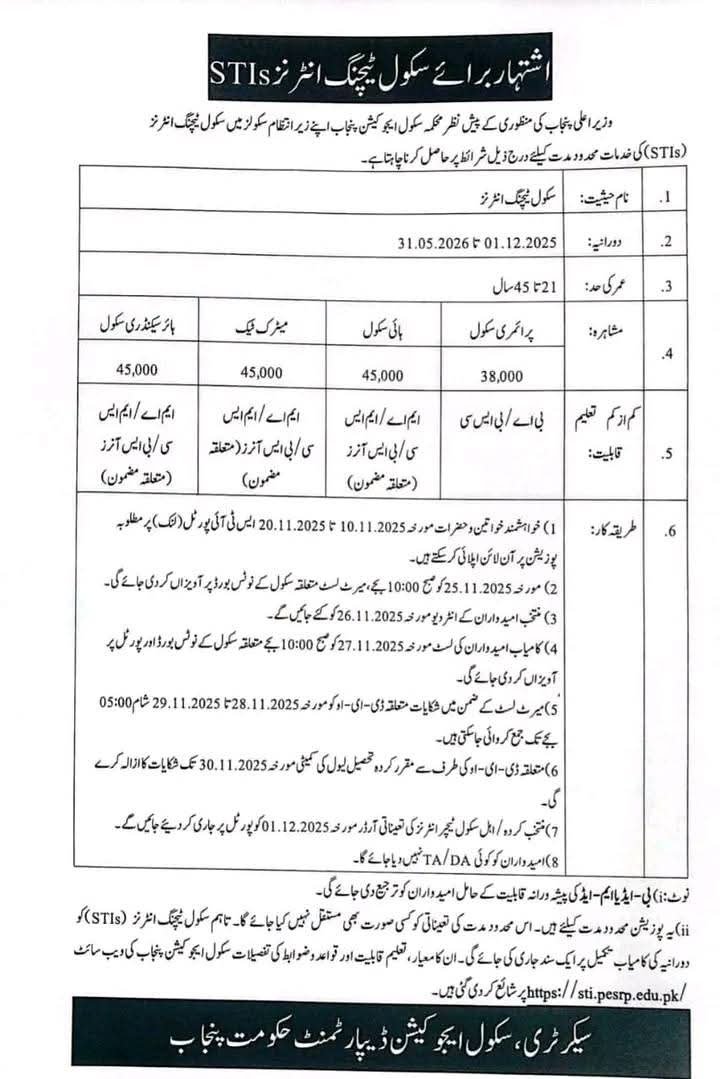 اشتہار برائے سکول ٹیچنگ انٹرنز STIs
وزیر اعلی پنجاب کی منظوری کے پیش نظر محکمہ سکول ایجوکیشن پنجاب اپنے زیر انتظام سکولز میں سکول ٹیچنگ انٹرنز
(STIs) کی خدمات محدود مدت کیلئے درج ذیل شرائط پر حاصل کرنا چاہتا ہے۔
1. نام حیثیت: سکول ٹیچنگ انٹرنز
2. دورانیہ: 01.12.2025 تا 31.05.2026
3. عمر کی حد: 21 تا 45 سال
4. مشاہرہ: پرائمری سکول ہائی سکول میٹرک ٹیک ہائر سیکنڈری سکول
38,000 45,000 45,000 45,000
5. کم از کم تعلیم بی اے/بی ایس سی ایم اے/ایم ایس ایم اے/ایم ایس ایم اے/ایم ایس
قابلیت: سی/بی ایس آنرز سی/بی ایس آنرز (متعلقہ سی/بی ایس آنرز
(متعلقہ مضمون) مضمون) (متعلقہ مضمون)
6. طریقہ کار: 1) خواہشمند خواتین و حضرات مورخہ 10.11.2025 تا 20.11.2025 ایس ٹی آئی پورٹل (لنک) پر مطلوبہ
پوزیشن پر آن لائن اپلائی کر سکتے ہیں۔
2) مورخہ 25.11.2025 کو صبح 10:00 بجے، میرٹ لسٹ متعلقہ سکول کے نوٹس بورڈ پر آویزاں کر دی جائے گی۔
3) منتخب امیدواران کے انٹرویو مورخہ 26.11.2025 کو کئے جائیں گے۔
4) کامیاب امیدواران کی لسٹ مورخہ 27.11.2025 کو صبح 10:00 بجے متعلقہ سکول کے نوٹس بورڈ اور پورٹل پر
آویزاں کر دی جائے گی۔
5) میرٹ لسٹ کے ضمن میں شکایات متعلقہ ڈی-ای-او کو مورخہ 28.11.2025 تا 29.11.2025 شام 05:00
بجے تک جمع کروائی جا سکتی ہیں۔
6) متعلقہ ڈی-ای-او کی طرف سے مقرر کردہ تحصیل لیول کی کمیٹی مورخہ 30.11.2025 تک شکایات کا ازالہ کرے
گی۔
7) منتخب کردہ/اہل سکول ٹیچر انٹرنز کی تعیناتی آرڈر مورخہ 01.12.2025 کو پورٹل پر جاری کر دیئے جائیں گے۔
8) امیدواران کو کوئی TA/DA نہیں دیا جائے گا۔
نوٹ: i) بی-ایڈ یا ایم-ایڈ کی پیشہ ورانہ قابلیت کے حامل امیدواران کو ترجیع دی جائے گی۔
ii) یہ پوزیشن محدود مدت کیلئے ہیں۔ اس محدود مدت کی تعیناتی کو کسی صورت بھی مستقل نہیں کیا جائے گا۔ تاہم سکول ٹیچنگ انٹرنز (STIs) کو
دورانیہ کی کامیاب تکمیل پر ایک سند جاری کی جائے گی۔ ان کا معیار، تعلیم قابلیت اور قواعد و ضوابط کی تفصیلات سکول ایجوکیشن پنجاب کی ویب سائٹ
https://sti.pesrp.edu.pk/ پر شائع کر دی گئی ہیں۔
سیکرٹری، سکول ایجوکیشن ڈیپارٹمنٹ حکومت پنجاب